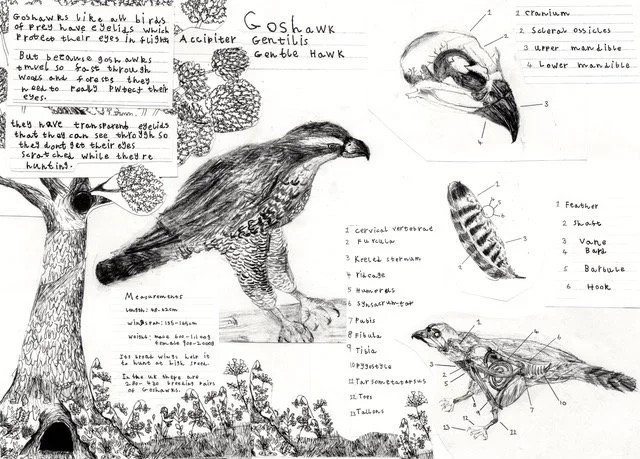 Goshawks like all birds
of prey have eyelids which
protect their eyes in flight
But because goshawks
travel so fast through
woods and forests they
need to really pwtect their
eyes.
they have transparent eyelids
that they can see through so
they dont get their eyes
scratched while they're
hunting.
Goshawk
Accipiter Gentilis
Gentle Hawk
1 cranium
2 Scleral ossicles
3 upper mandible
4 Lower mandible
1
2
3
4
1 Feather
2 Shaft
3 Vane
4 Barb
5 Barbule
6 Hook
1
2
3
4
5
6
1 cervical vertebrae
2 Furcula
3 Keeled sternum
4 ribcage
5 Humerus
6 Synsacrum
7 Pubis
8 Fibula
9 Tibia
10 Pygostyle
11 Tarsometatarsus
12 Toes
13 Tallons
Measurements
Length: 48-62cm
wingspan: 135-165cm
weight: male
female 900-2000g
Its broad wings help it
to hunt at high speed.
In the uk there are
280-430 breeding pairs
of Goshawks.